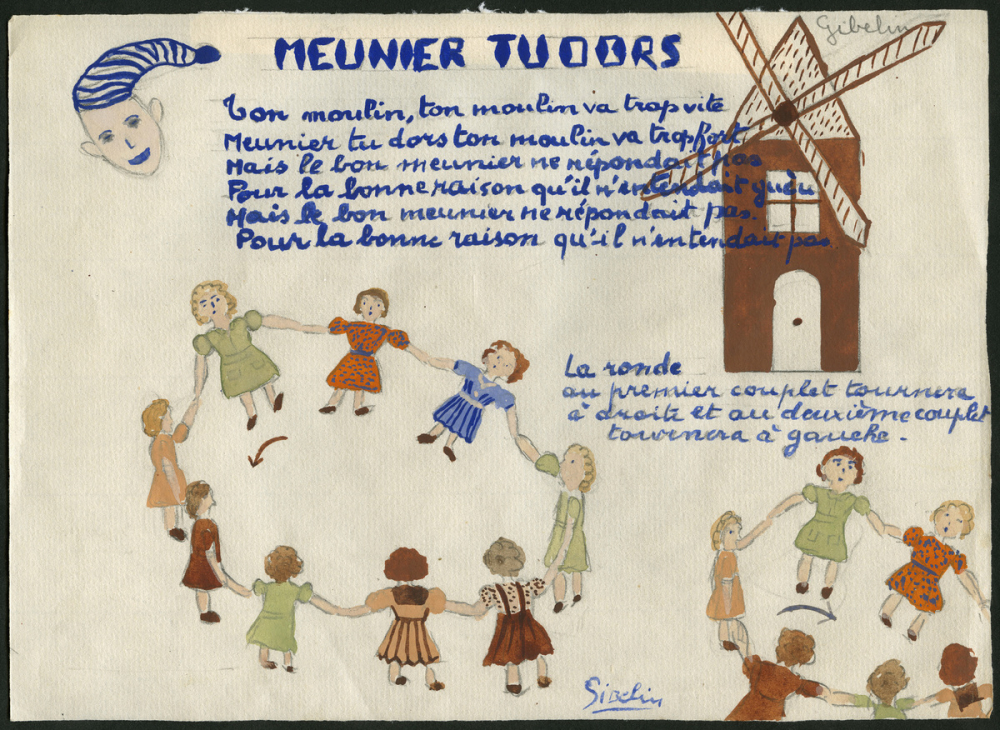 Gibelin
MEUNIER TU DORS
Ton moulin, ton moulin va trop vite
Meunier tu dors ton moulin va trop fort
Mais le bon meunier ne répondait pas
Pour la bonne raison qu'il n'entendait guèu
Mais le bon meunier ne répondait pas.
Pour la bonne raison qu'-il n'entendait pas
La ronde
au premier couplet tournera
à droite et au deuxième couplet
tournera à gauche.
Gibelin